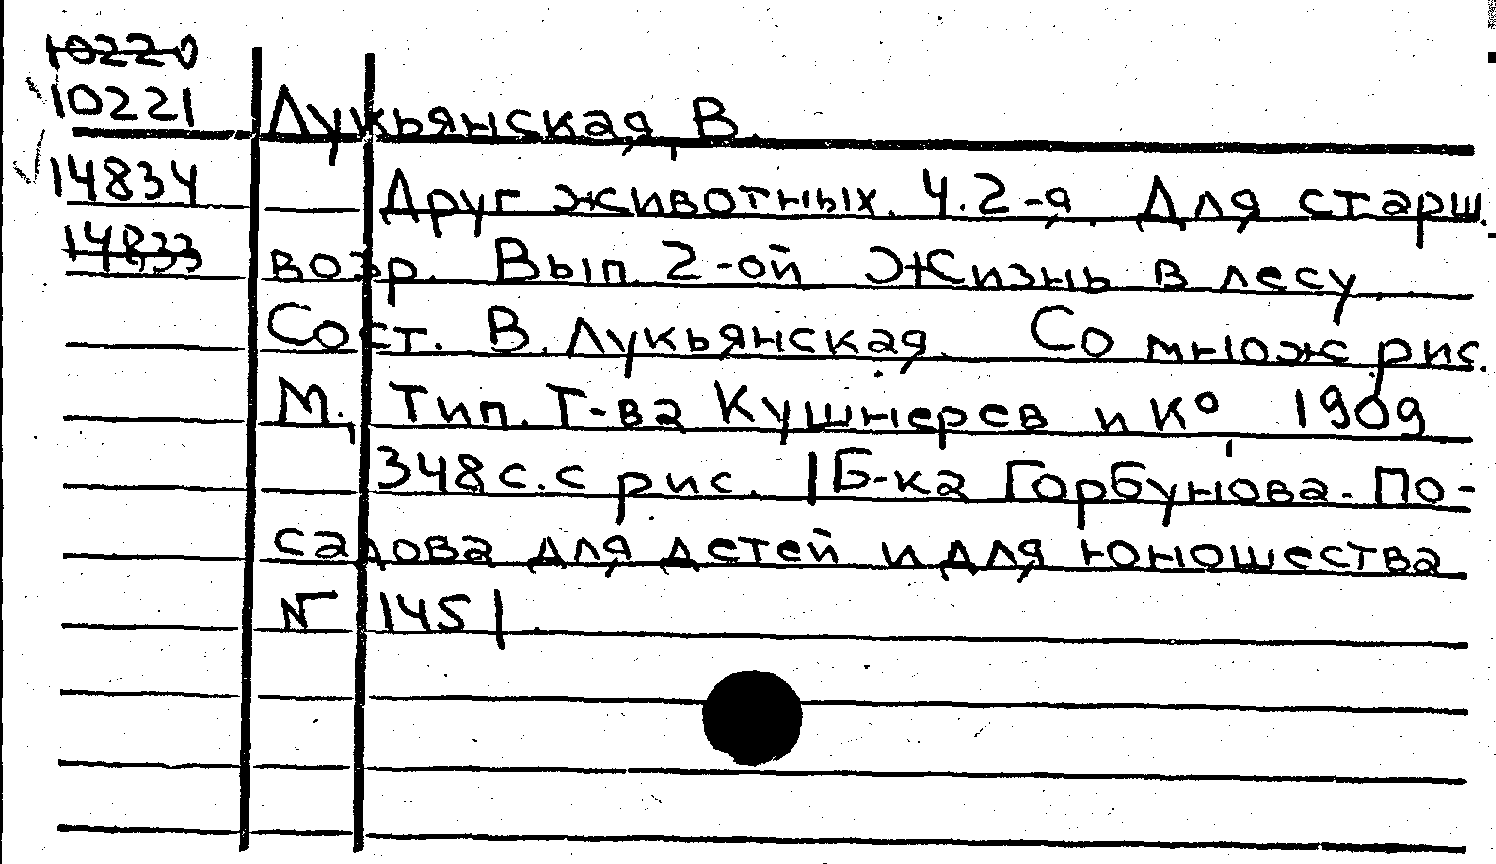 10220
10221
Лукьянская, В.
14834
Друг животных. Ч.2-я. Для старш.
14833
возр. Вып. 2-ой Жизнь в лесу
Сост. В. Лукьянская. Со множ рис.
М., Тип. Т-ва Кушнерев и К°, 1909
348 с. с рис. |Б-ка Горбунова-По-
садова для детей и для юношества
№ 145|.